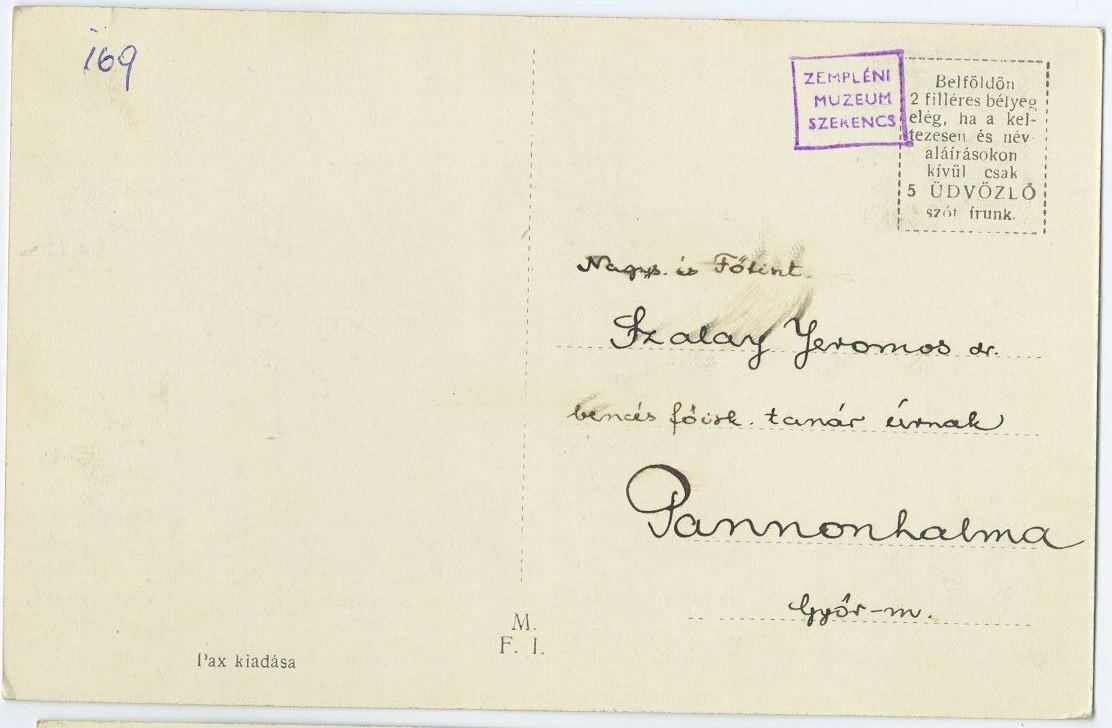 i69
ZEMPLÉNI
MUZEUM
SZERENCS
Belföldön
2 filléres bélyeg
elég, ha a kel-
tezesen és név-
aláírásokon
kívül csak
5 ÜDVÖZLŐ
szót írunk.
Nagys. és Főtint.
Szalay Jeromos dr.
bencés főisk. tanár úrnak
Pannonhalma
Győr-m.
M.
F. I.
Pax kiadása